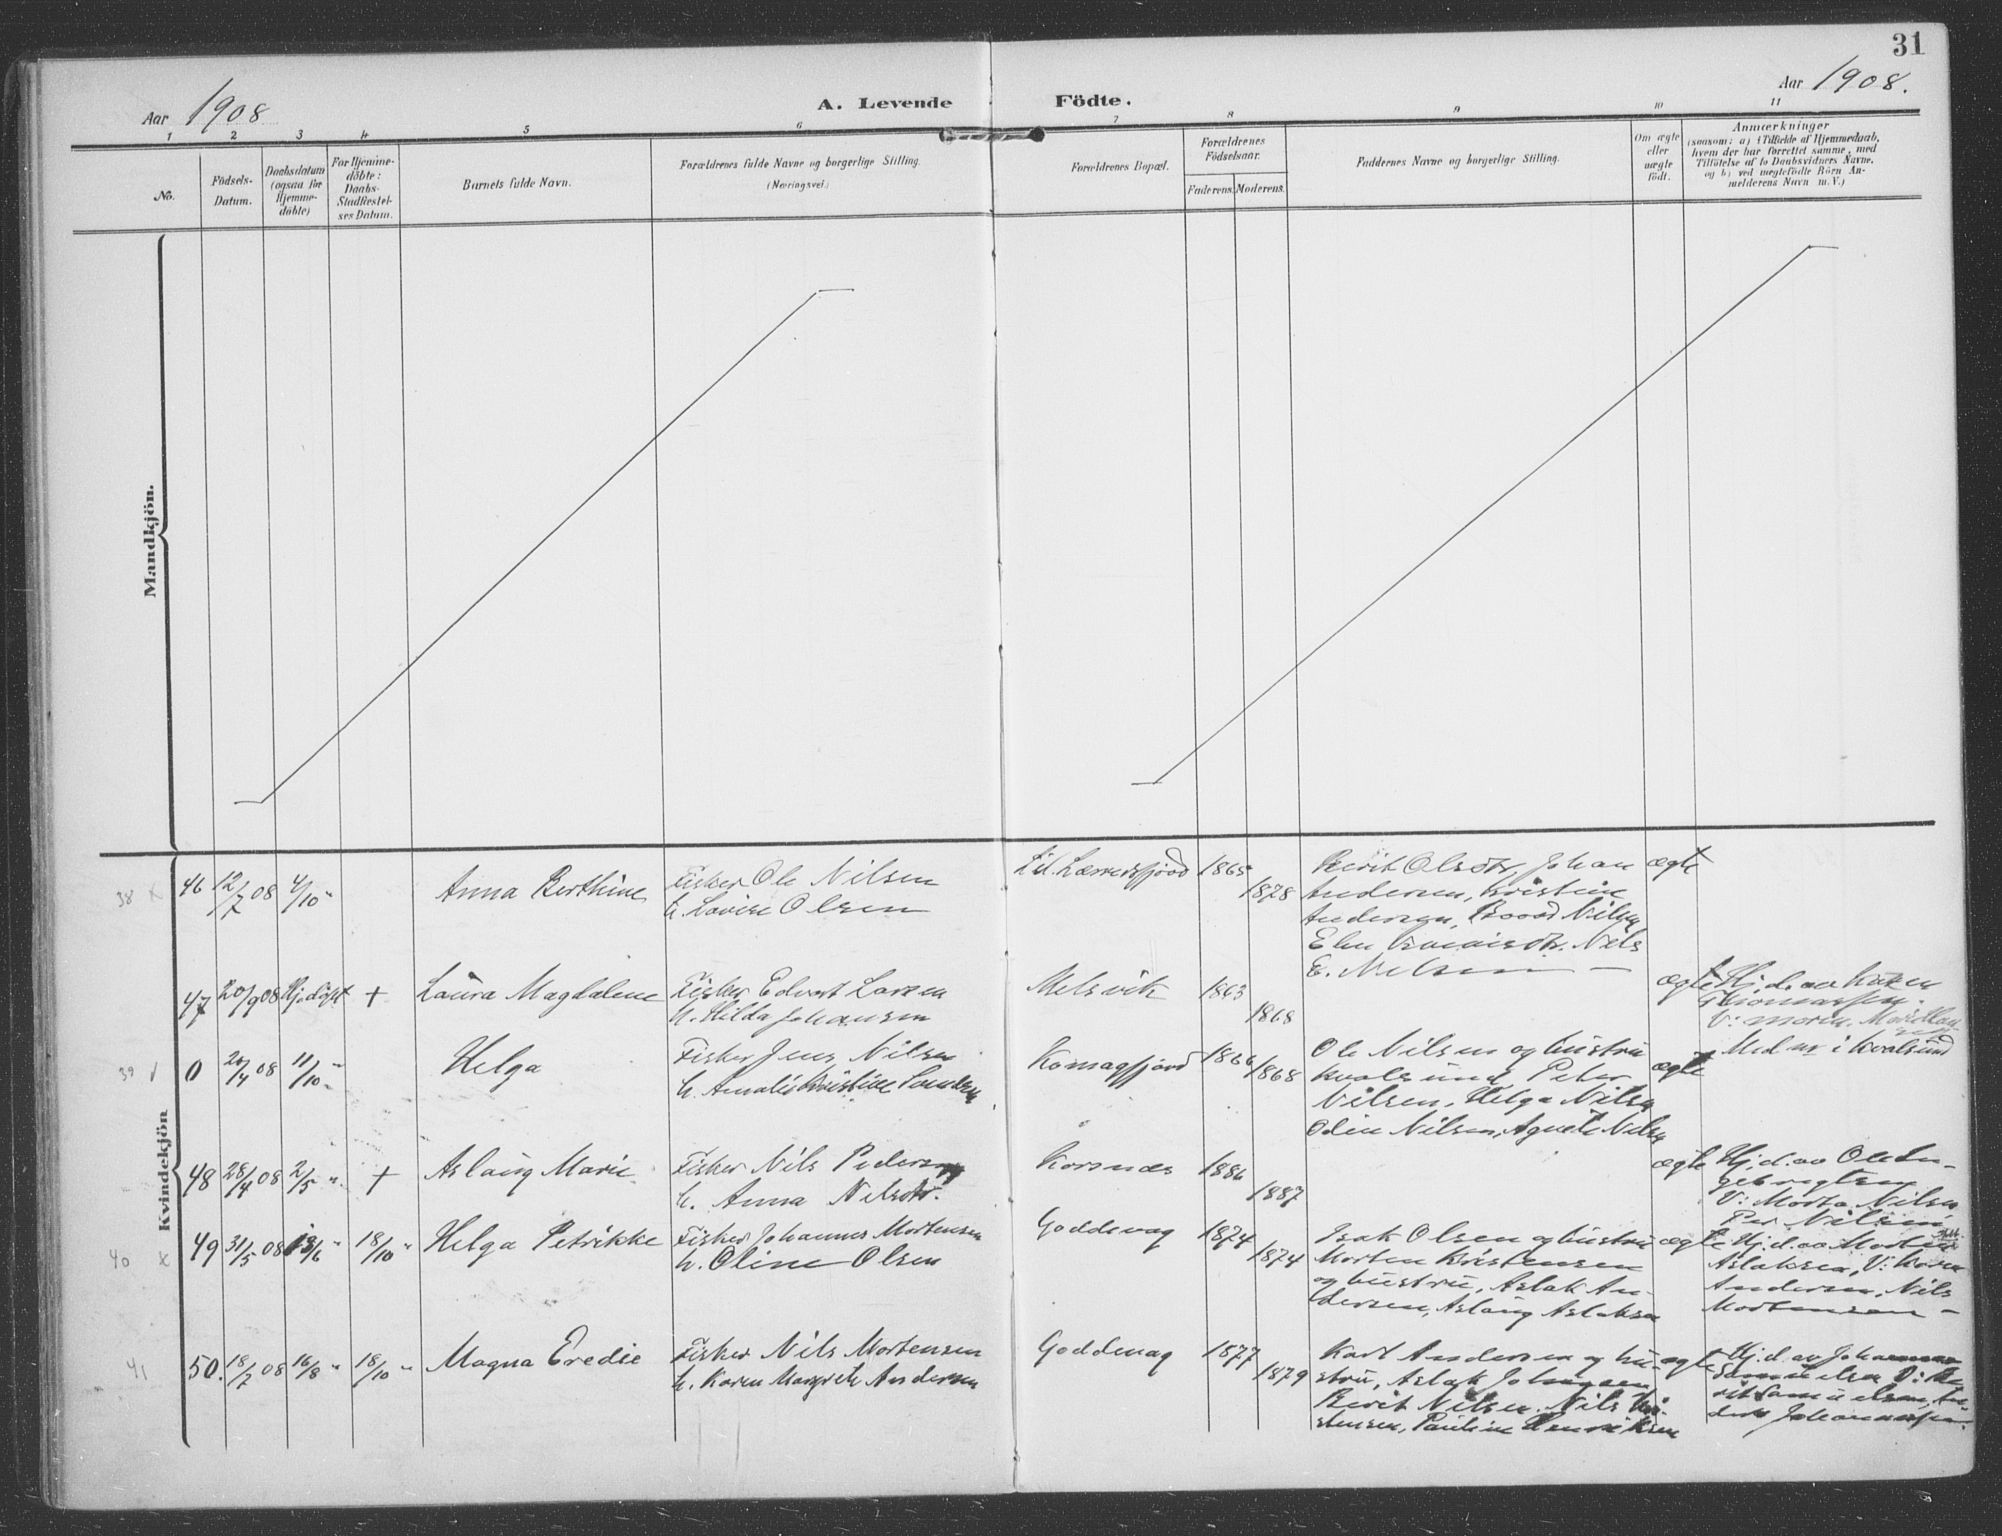 31
Aar 1908
A. Levende Födte.
Aar 1908.
1 2 3 4 5 6 7 8 9 10 11
No.
Födsels-
Datum.
Daabsdatum
(ogsaa før
Hjemme-
döbte)
For Hjemme-
döbte:
Daabs-
Stadfæstel-
ses Datum.
Barnets fulde Navn.
Forældrenes fulde Navne og borgerlige Stilling.
(Næringsvei.)
Forældrenes Bopæl.
Forældrenes
Födselsaar.
Faderens. Moderens.
Faddernes Navne og borgerlige Stilling.
Om ægte
eller
uægte
födt.
Anmærkninger
(saasom: a) i Tilfælde af Hjemmedaab,
hvem der har forrettet samme, med
Tilföielse af to Daabsvidners Navne,
og b) ved uægtefödte Börn An-
melderens Navn m. V.)
Mandkjön.
Kvindekjön
38 x 46 12/7 08 4/10 "
Anna Berthine
Fisker Ole Nilsen
h. Lovise Olsen
Lil. Lærresfjord 1865
1878
Berit Olsdtr, Johan
Andersen, Kristine
Andersen,
Nils
E. Nilsen
ægte
47 20/9 08 Hj.döpt +
Laura Magdalene
Fisker Edvart Larsen
h. Hilda Johansen
Melsvik 1863
1868
ægte
Hj. d. av
Thomassen.
39 0 20/4 08 11/10 "
Helga
Fisker Jens Nilsen
h. Amalie Kristine
Komagfjord 1866
1868
Ole Nilsen og hustru
Kvalsund, Peter
Nilsen, Helga Nilsen
Odin Nilsen, Agnete Nilsen
ægte
Med nr i Kvalsund
48 28/4 08 2/5 " +
Aslaug Marie
Fisker Nils Pedersen
h. Anna Nilsdtr.
Korsnes 1886
1887
ægte
Hj. d. av Ole In-
gebrigtsen
V: Marta Nilsen
Per Nilsen
40 x 49 31/5 08 13/6 " 18/10 "
Helga Petrikke
Fisker Johannes Mortensen
h. Oline Olsen
Goddevag 1874
1874
Isak Olsen og hustru
Morten Kristensen
og hustru, Aslak An-
dersen, Aslaug Aslaksen
ægte
Hj. d. av Morten
Aslaksen, V: Karen
Andersen, Nils
Mortensen
41 50. 18/7 08 16/8 " 18/10 "
Magna Eredie
Fisker Nils Mortensen
h. Karen Margrete Andersen
Goddevag 1877
1879
Karl Andersen og hu-
stru, Aslak Johansen
Berit Nilsen, Nils Kri-
stensen, Pauline Henriksen
ægte
Hj. d. av Johannes
Samuelsen V: Be-
rit Samuelsen, An-
ders Johannessen